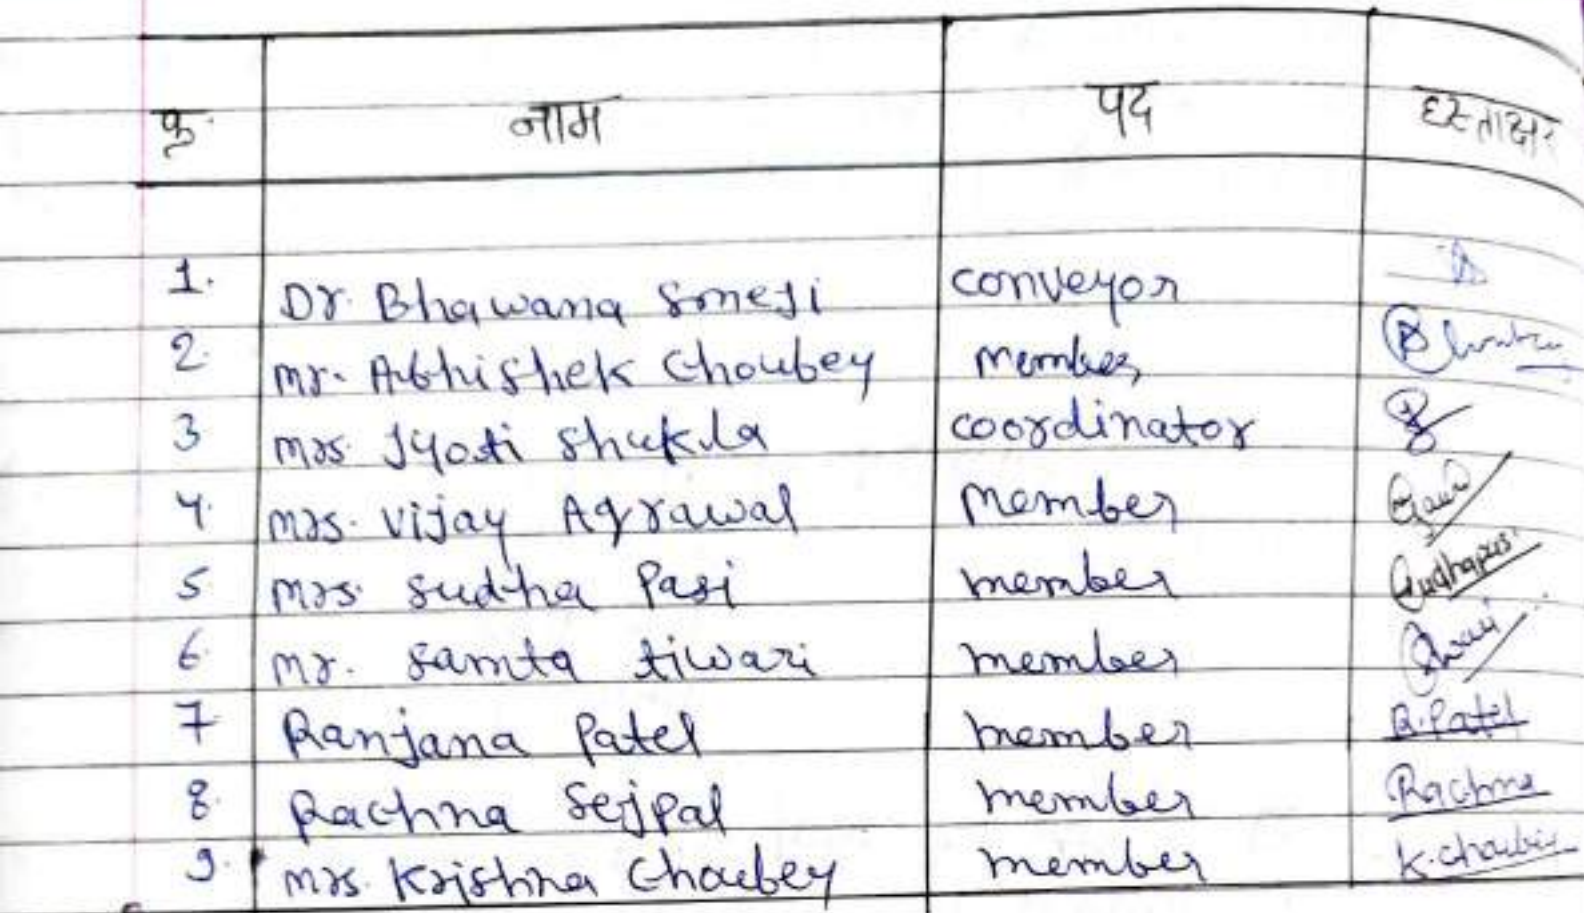 क्र. नाम पद हस्ताक्षर
1. Dr. Bhawana Someji conveyor
2. Mr. Abhishek Choubey Member
3 Mrs. Jyoti Shukla coordinator
4. Mrs. Vijay Agrawal Member
5 Mrs. Sudha Pasi member
6. Mr. Samta tiwari member
7 Ranjana Patel member R.Patel
8. Rachna Sejpal member Rachna
9. Mrs. Krishna Choubey member K.Choubey